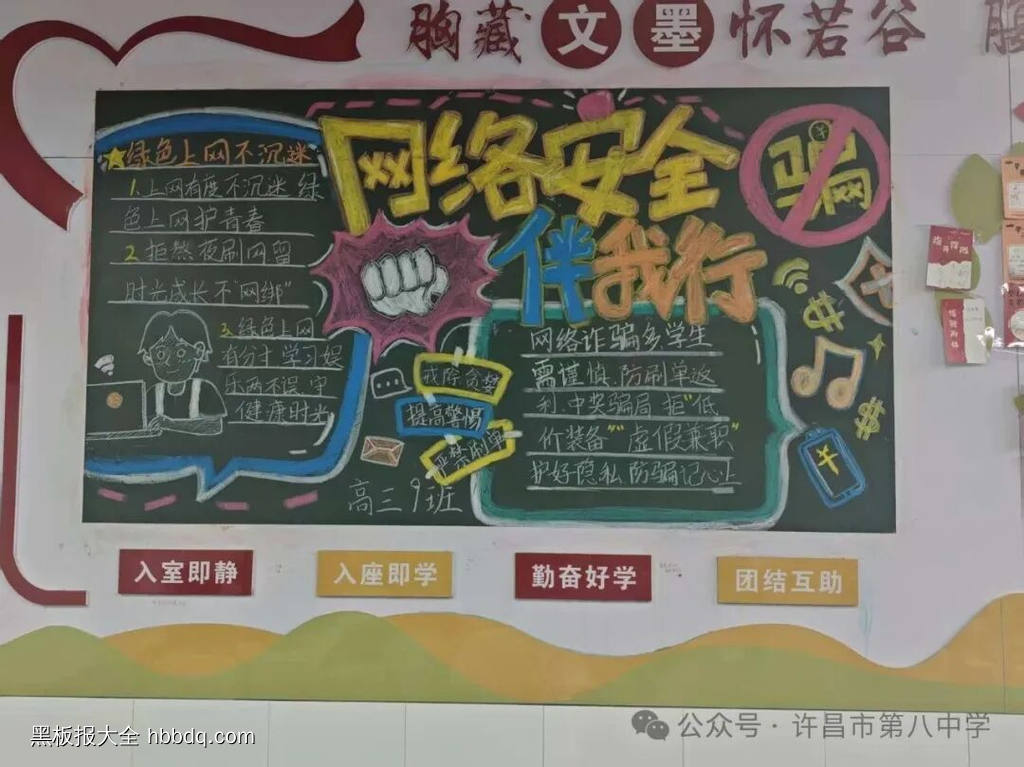 胸藏文墨怀若谷
网络安全
伴我行
骗网
★绿色上网不沉迷
1.上网有度不沉迷 绿
色上网护青春
2.拒熬夜刷网留
时光成长不"网绑"
3.绿色上网
有分寸 学习娱
乐两不误.守
健康时光
戒除贪婪
提高警惕
严禁刷单
高三9班
网络诈骗多.学生
需谨慎.防刷单返
利.中奖骗局 拒"低
价装备""虚假兼职"
护好隐私 防骗记心上
入室即静
入座即学
勤奋好学
团结互助
黑板报大全 hbbdq.com
公众号·许昌市第八中学